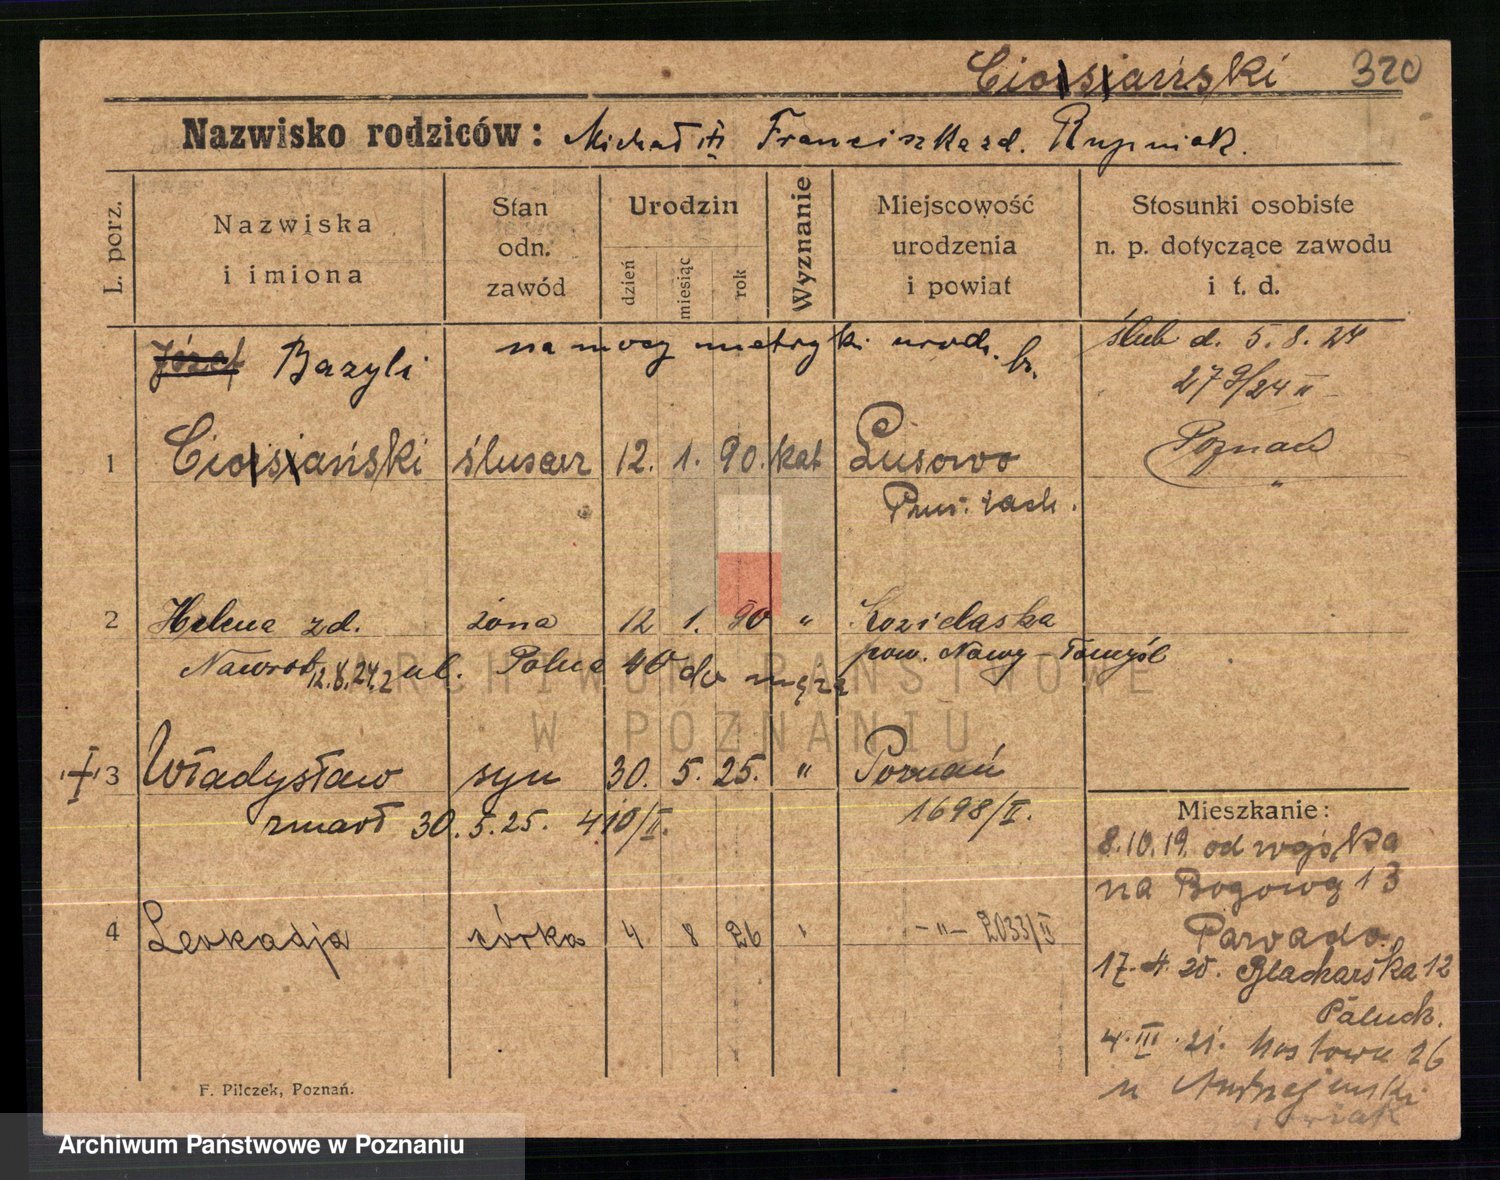 Ciosański 320
Nazwisko rodziców: Michał i Franciszka zd. Rupniak.
L. porz.
Nazwiska
i imiona
Stan
odn.
zawód
Urodzin
dzień
miesiąc
rok
Wyznanie
Miejscowość
urodzenia
i powiat
Stosunki osobiste
n. p. dotyczące zawodu
i t. d.
Józef Bazyli na mocy metryki urodz. ślub d. 5.8.24
279/24 II
1 Ciosański ślusarz 12. 1. 90. kat Lusowo Poznań
Prus. zach.
2 Helena zd. żona 12 1. 90 " Kozielaska
Nawrot 12.8.24. z ul. Polna 40 do męża pow. Nowy-Tomyśl
3 Władysław syn 30. 5. 25. " Poznań
zmarł 30.5.25. 410/I. 1698/I.
4 Leokadja córka 4 8 26 " -"- 2033/II
Mieszkanie:
8.10.19. od wojska
na Bogową 13
17.4.20. Blacharska 12
4.III.21. Mostowa 26
u Andrzejewski
F. Pilczek, Poznań.
ARCHIWUM PAŃSTWOWE
W POZNANIU
Archiwum Państwowe w Poznaniu